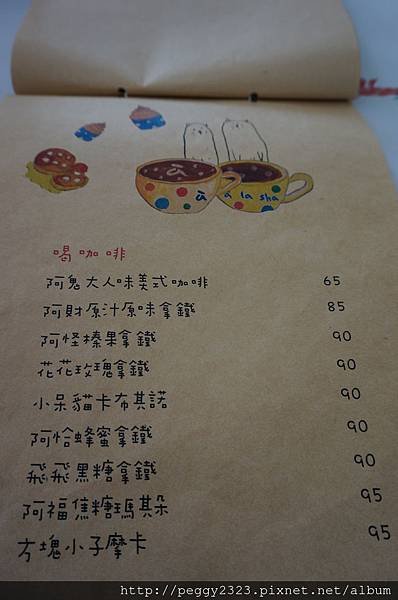 à a la sha
喝咖啡
阿鬼大人味美式咖啡 65
阿財原汁原味拿鐵 85
阿怪榛果拿鐵 90
花花玫瑰拿鐵 90
小呆貓卡布其諾 90
阿恰蜂蜜拿鐵 90
飛飛黑糖拿鐵 90
阿福焦糖瑪其朵 95
方塊小子摩卡 95
http://peggy2323.pixnet.net/album